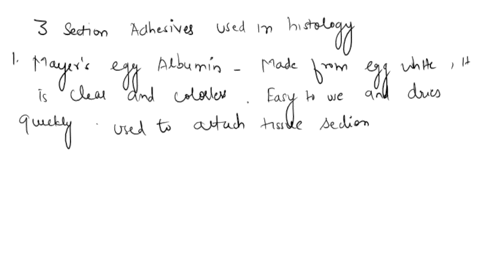 3 Section Adhesives used in histology
1. Mayer's egg Albumin - Made from egg white, it
is clear and colorless. Easy to use and dries
quickly. used to attach tissue section